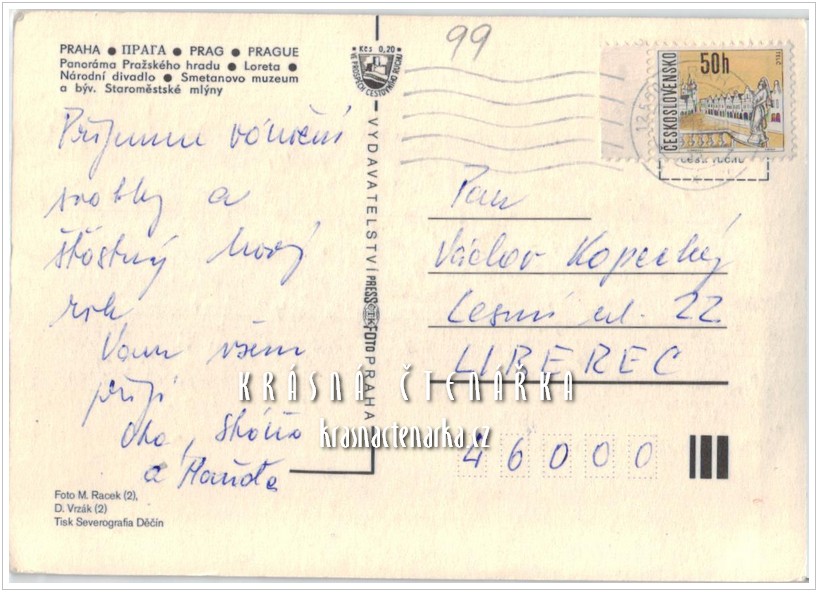 PRAHA ● ПРАГА ● PRAG ● PRAGUE
Panoráma Pražského hradu ● Loreta ●
Národní divadlo ● Smetanovo muzeum
a býv. Staroměstské mlýny
Kčs 0,20
VE PROSPĚCH CESTOVNÍHO RUCHU
99
ČESKOSLOVENSKO
50h
TELČ
12.5.
Příjemné vánoční
svátky a
šťastný nový
rok
Vám všem
přejí
a
VYDAVATELSTVÍ PRESSFOTO PRAHA
ČTK
Pan
Václav Kopecký
Lesní ul. 22
LIBEREC
46000
KRÁSNÁ ČTENÁŘKA
krasnactenarka.cz
Foto M. Racek (2),
D. Vrzák (2)
Tisk Severografia Děčín